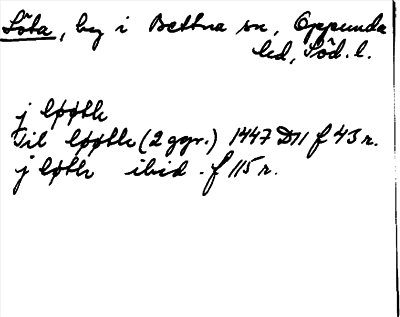 Löta, by i Bettna sn, Oppunda
hd, Söd. l.
j løøth
Til løøth (2 ggr.) 1447 D11 f 43 r.
j løth ibid. f 115 r.